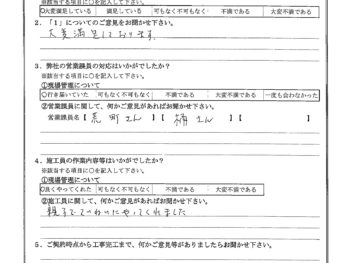 ※該当する項目に○を記入して下さい。
○大変満足している 満足している 可もなく不可もなく 不満である 大変不満である
2．「1」についてのご意見をお聞かせ下さい。
大変満足しております。
3．弊社の営業議員の対応はいかがでしたか？
※該当する項目に○を記入して下さい。
①現場管理について
○行き届いていた 可もなく不可もなく 不満である 大変不満である 一度も会わなかった
②営業議員に関して、何かご意見があればお聞かせ下さい。
営業議員名【 荒町さん 】【 さん 】
4．施工員の作業内容等はいかがでしたか？
※該当する項目に○を記入して下さい。
①現場管理について
○良くやってくれた 可もなく不可もなく 不満である 大変不満である
②施工員に関して、何かご意見があればお聞かせ下さい。
親子でていねいにやってくれました
5．ご契約時点から工事完工まで、何かご意見等がありましたらお聞かせ下さい。